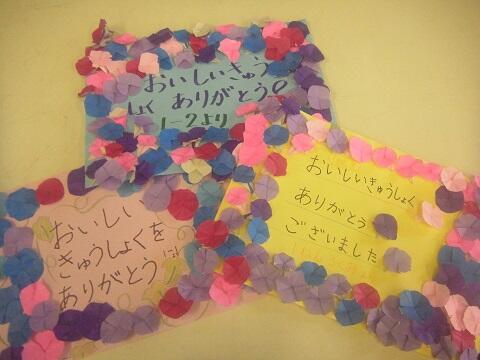 おいしいきゅう
しょく ありがとう。
1-2より
おいしいきゅうしょく
ありがとう
ございました
おいしい
きゅうしょくを
ありがとう